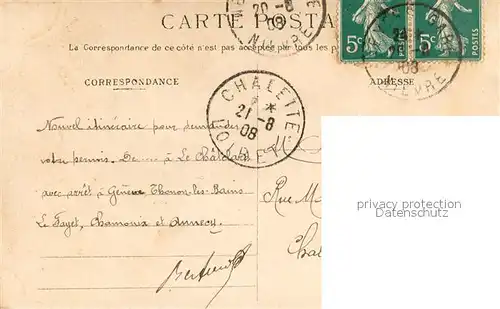 CARTE POSTA
20 -8
08
NIEVRE
5c 5c
La Correspondance de ce côté n'est pas acceptée par tous les p
08
NIEVRE
CORRESPONDANCE
ADRESSE
CHALETTE
21 -8
08
LOIRET
Nouvel itinéraire pour demander
votre permis. De à Le Châtelard
avec arrêt à Genève Thonon-les-Bains
Le Fayet, Chamonix et Annecy.
Rue M
Chal
privacy protection
Datenschutz